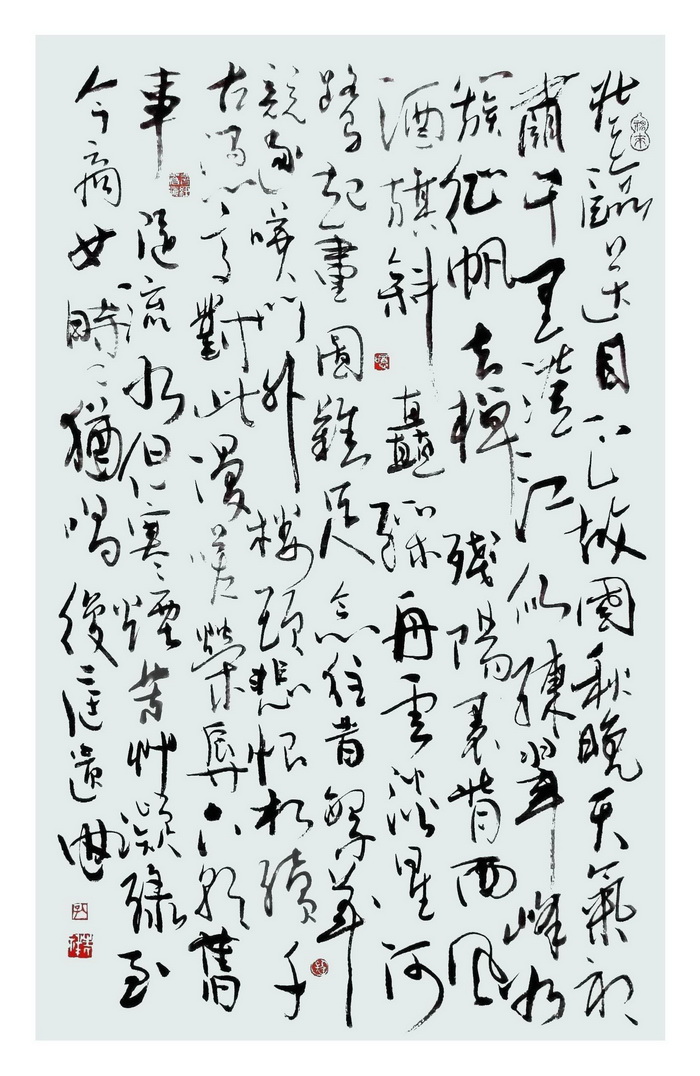 登臨送目正故國秋晚天氣初
肅千里澄江似練翠峰如
簇征帆去棹殘陽裏背西風
酒旗斜矗綵舟雲淡星河
鷺起畫圖難足念往昔繁華
競逐嘆門外樓頭悲恨相續千
古憑高對此漫嗟榮辱六朝舊
事隨流水但寒煙芳艸凝綠至
今商女時々猶唱後庭遺曲